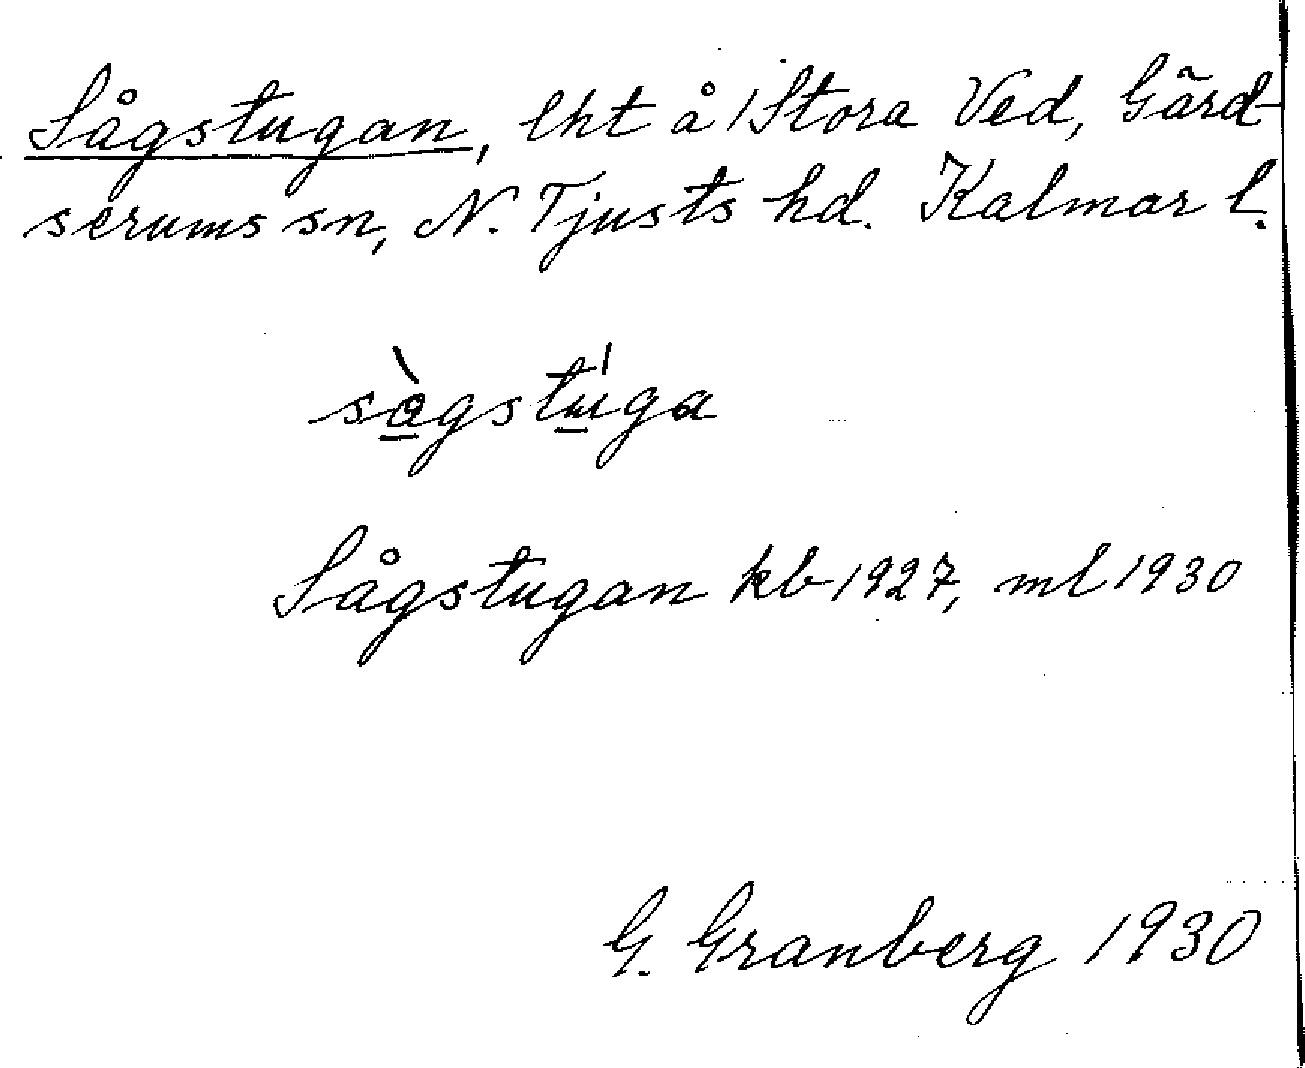 Sågstugan, lht å Stora Ved, Gärd-
serums sn, N. Tjusts hd. Kalmar l.
sàgstúga
Sågstugan kb 1927, ml 1930
G. Granberg 1930